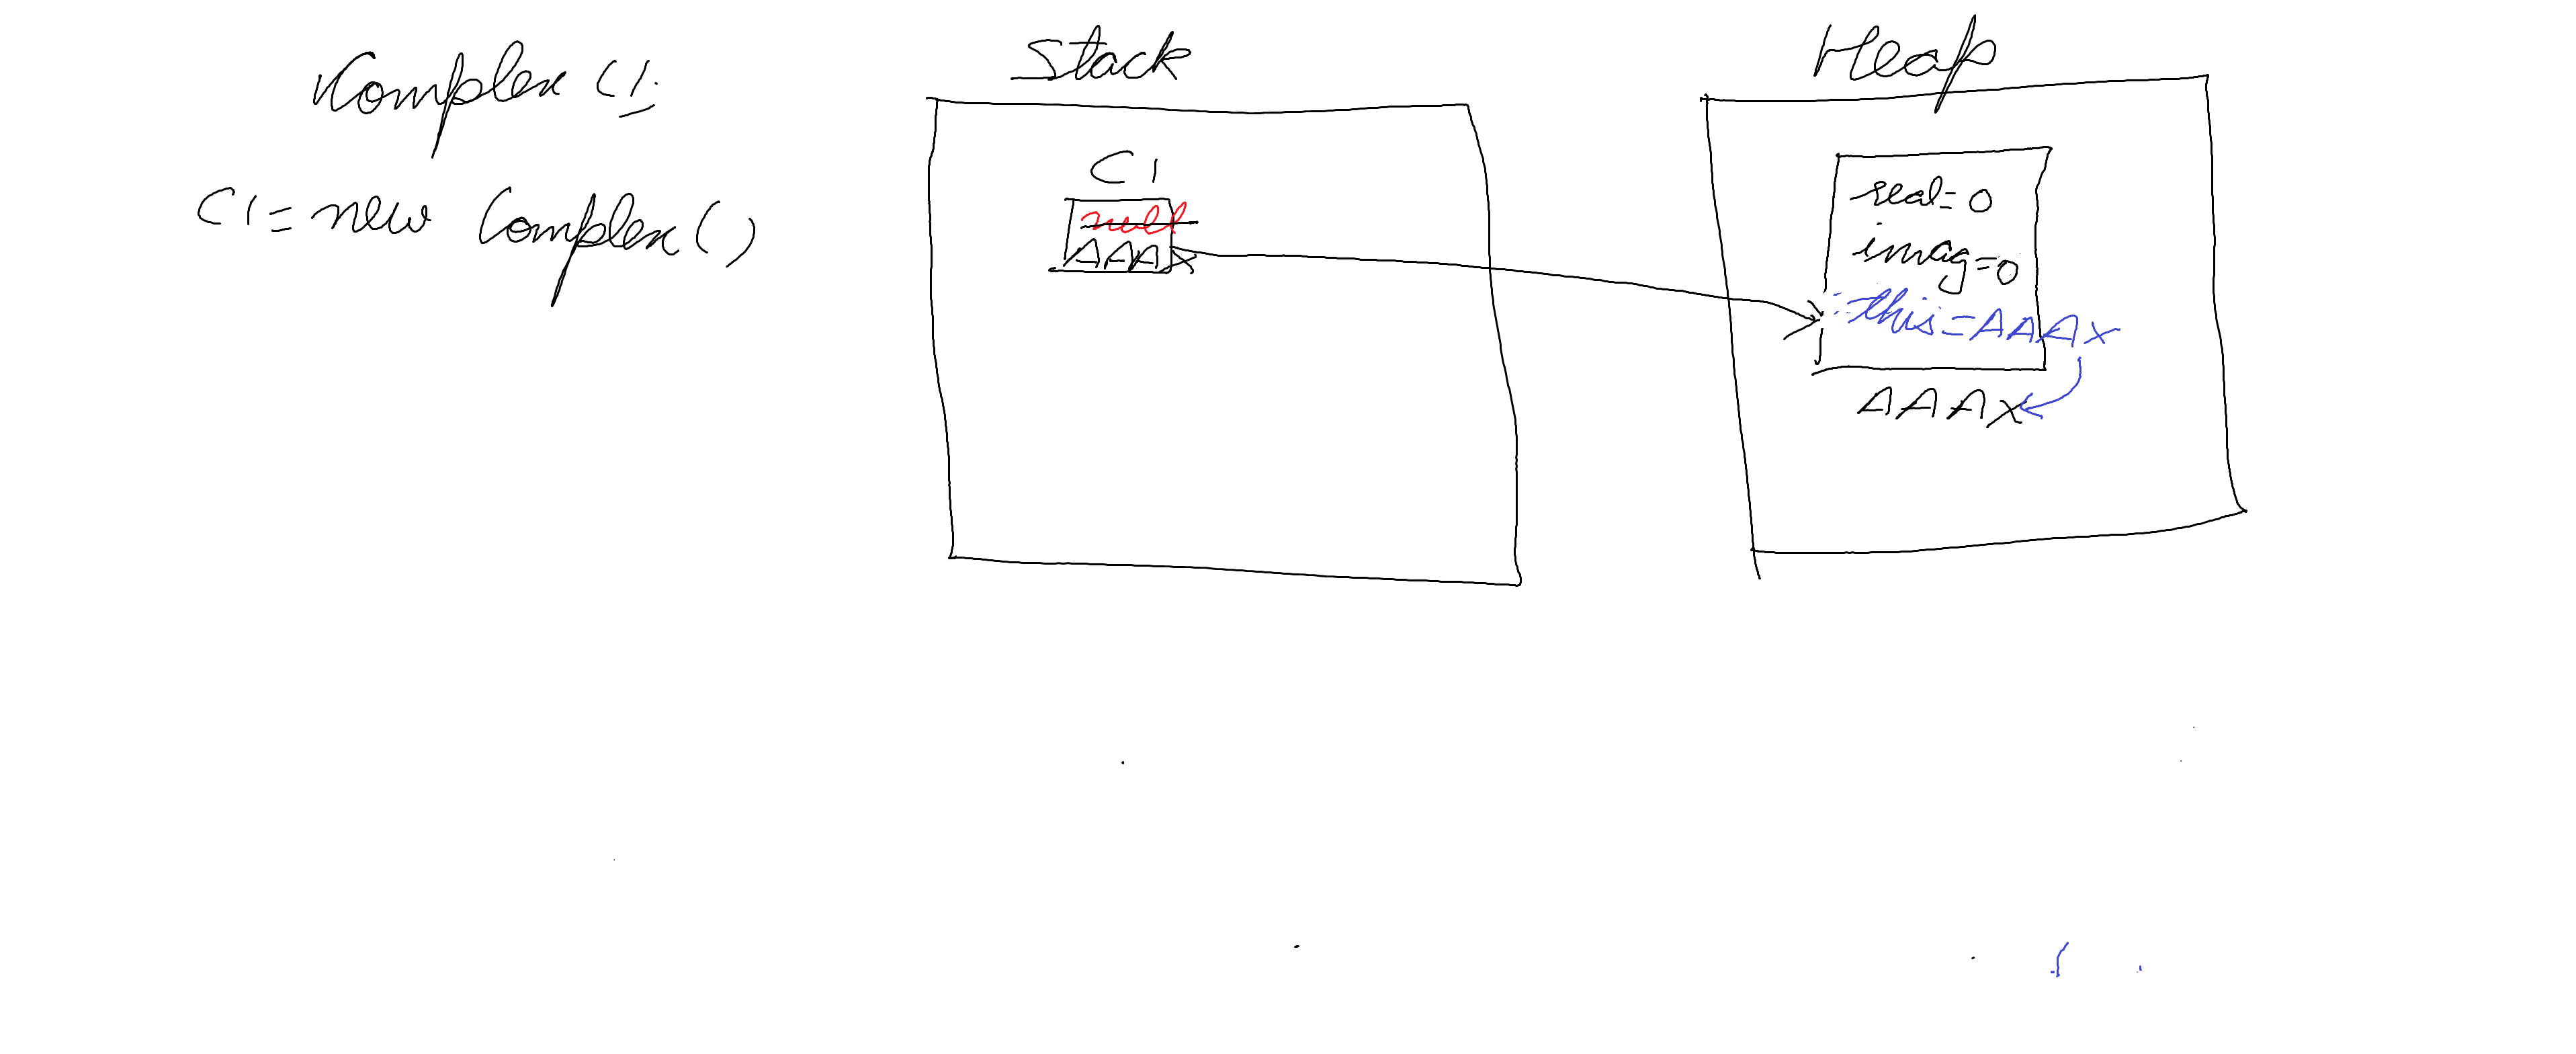 Complex C1;
C1 = new Complex()
Stack
C1
null
AAAX
Heap
real = 0
imag = 0
this = AAAX
AAAX